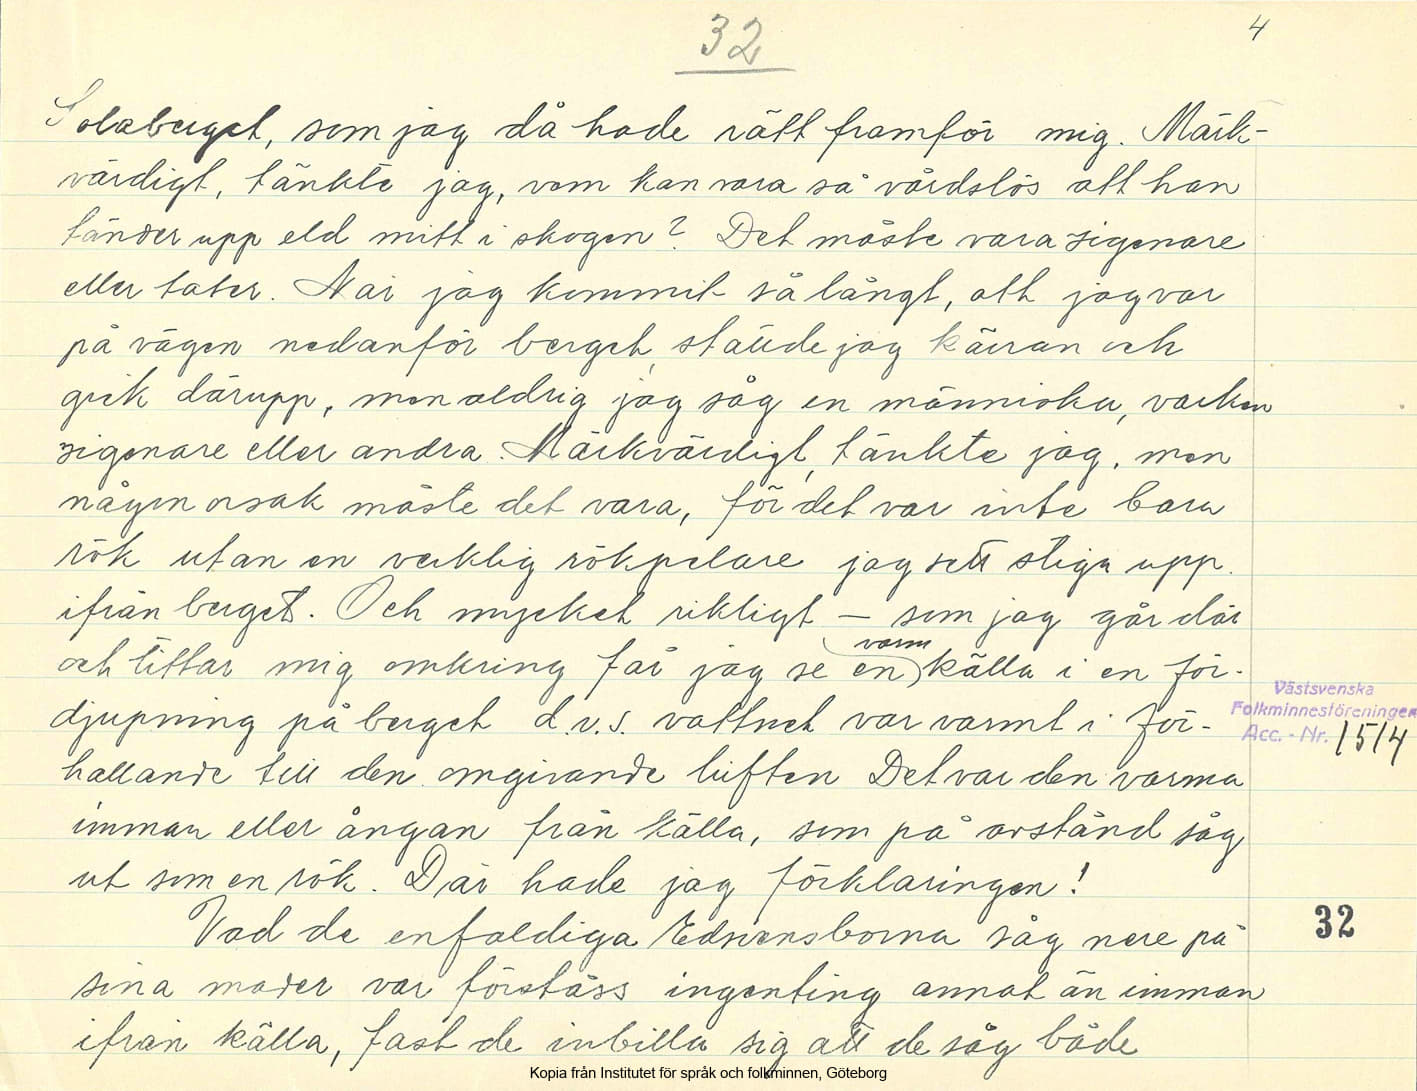 32
4
Solaberget, som jag då hade rätt framför mig. Märk-
värdigt, tänkte jag, vem kan vara så vårdslös att han
tänder upp eld mitt i skogen? Det måste vara zigenare
eller tater. När jag kommit så långt, att jag var
på vägen nedanför berget, ställde jag kärran och
gick därupp, men aldrig jag såg en människa, varken
zigenare eller andra. Märkvärdigt, tänkte jag, men
någon orsak måste det vara, för det var inte bara
rök utan en verklig rökpelare jag sett stiga upp
ifrån berget. Och mycket riktigt – som jag går där
varm
och tittar mig omkring får jag se en källa i en för-
djupning på berget d.v.s. vattnet var varmt i för-
hållande till den omgivande luften Det var den varma
imman eller ångan från källa, som på avstånd såg
ut som en rök. Där hade jag förklaringen!
Vad de enfaldiga Edsvensborna såg nere på
sina mader var förståss ingenting annat än imman
ifrån källa, fast de inbilla sig att de såg både
Västsvenska
Folkminnesföreningen
Acc. - Nr. 1514
32
Kopia från Institutet för språk och folkminnen, Göteborg